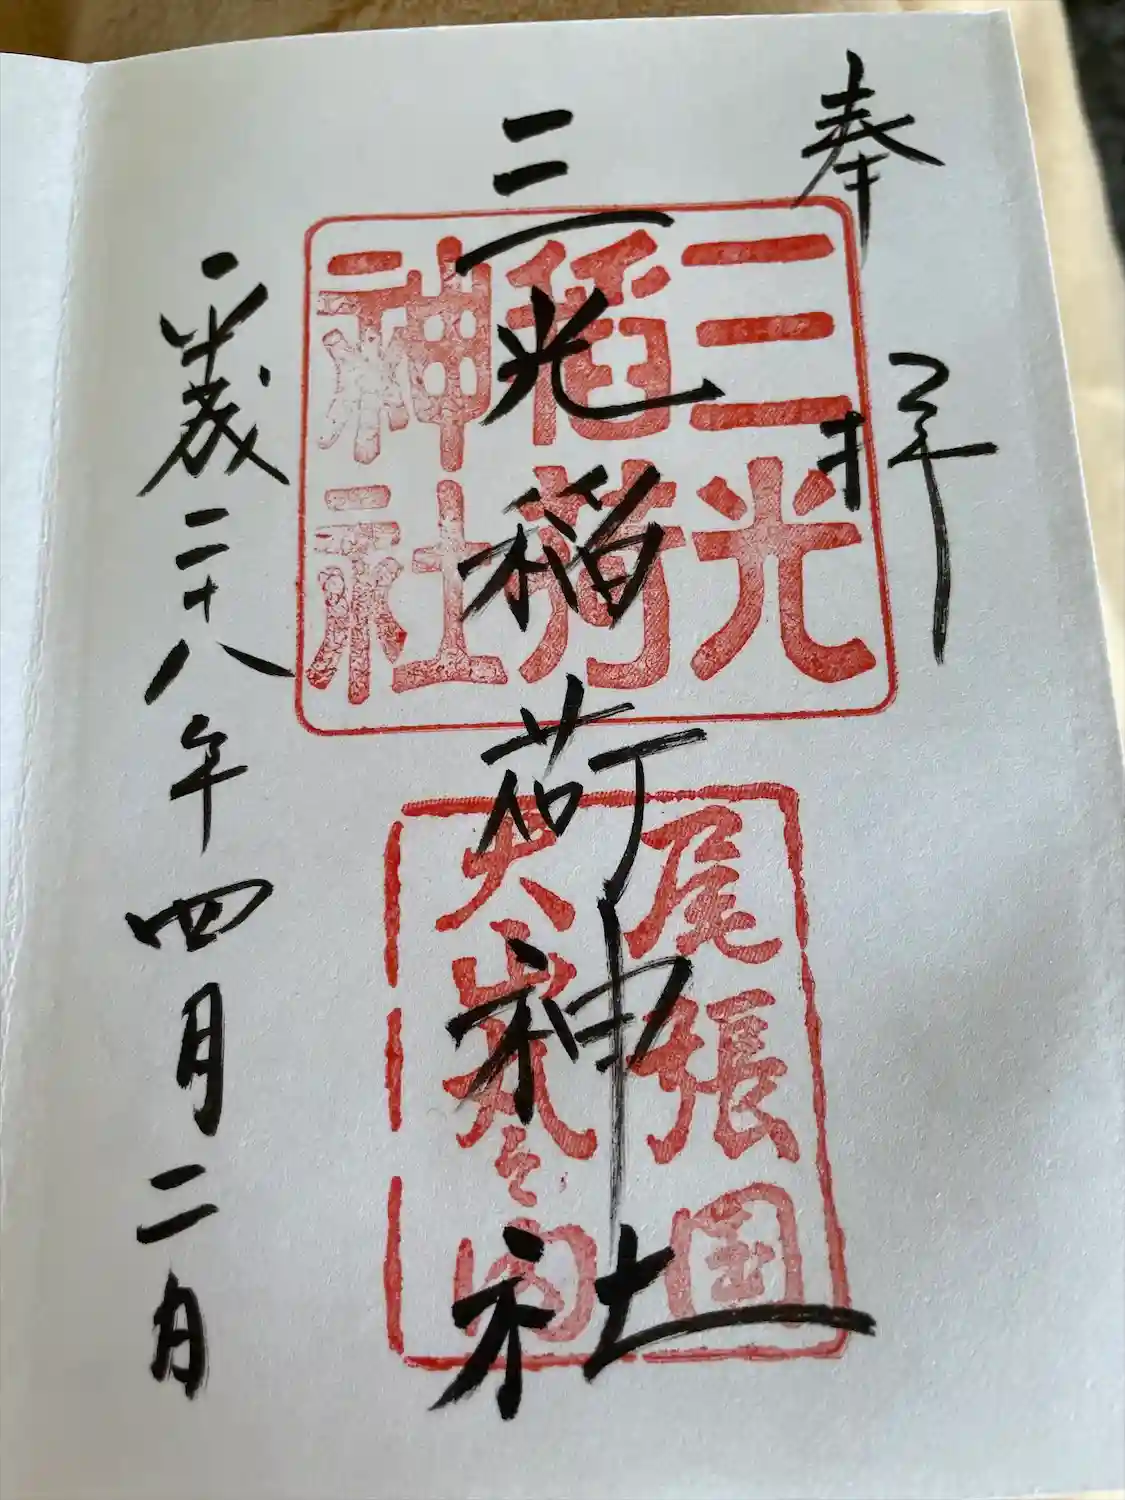 奉拝
三光稲荷神社
三光
稲荷
神社
尾張国
犬山丸之内
平成二十八年四月二日